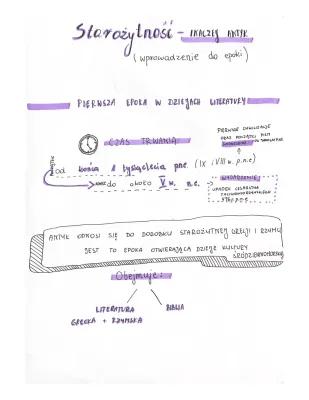 Starożytność - INACZEJ ANTYK
(wprowadzenie do epoki)
PIERWSZA EPOKA W DZIEJACH LITERATURY
PIERWSZE CYWILIZACJE
ORAZ POCZĄTKI PISM
CZAS TRWANIA
od końca I tysiąclecia p.n.e. (IX i VIII w. p.n.e)
do około V w. n.e.
WYDARZENIE
UPADEK CESARSTWA
ZACHODNIORZYMSKIEGO
ANTYK ODNOSI SIĘ DO DOROBKU STAROŻYTNEJ GRECJI I RZYMU
JEST TO EPOKA OTWIERAJĄCA DZIEJE KULTURY
ŚRÓDZIEMNOMORSKIEJ
Obejmuje:
LITERATURA
GRECKA + RZYMSKA
BIBLIA